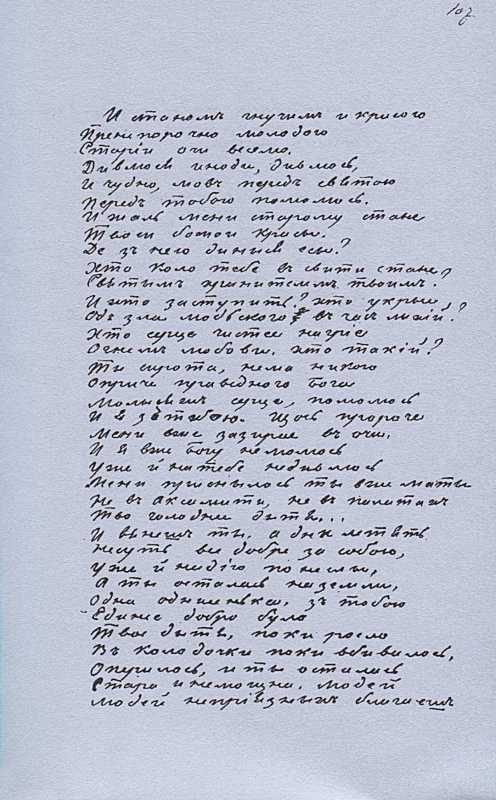 107
И станомъ гнучимъ и красою
Пренепорочно молодою
Старіи очи веселю.
Дивлюся иноди, дивлюсь,
И чудно, мовъ передъ святою
Передъ тобою помолюсь.
И жаль мени старому стане
Твоеи божои красы.
Де зъ нею динисся есы?
Хто коло тебе въ свити стане?
Святымъ хранителемъ твоимъ.
И хто заступить? хто укрые
Одъ зла людського въ часъ лютій?
Хто серце чистее нагріе
Огнемъ любови. хто такій?
Ты сирота, нема никого
Оприче праведного Бога
Молысяжъ серце, помолюсь
И я зъ тобою. Щось пророче
Мени вже зазирае въ очи.
И я вже богу не молюсь
Уже й на тебе не дивлюсь
Мени приснылось ты вже маты
Не въ аксамити, не въ палатахъ
Твое голоднее дитя...
И вянешъ ты. а дни летять
Несуть все добре за собою,
Уже й надію понеслы,
А ты осталась на земли,
Одна однисенька. зъ тобою
Едине добро було
Твое дитя, поки росло
Въ колодочки поки вбивалось,
Опирилось, и ты осталась
Стара и немощна. Людей
Людей непріязныхъ благаешъ